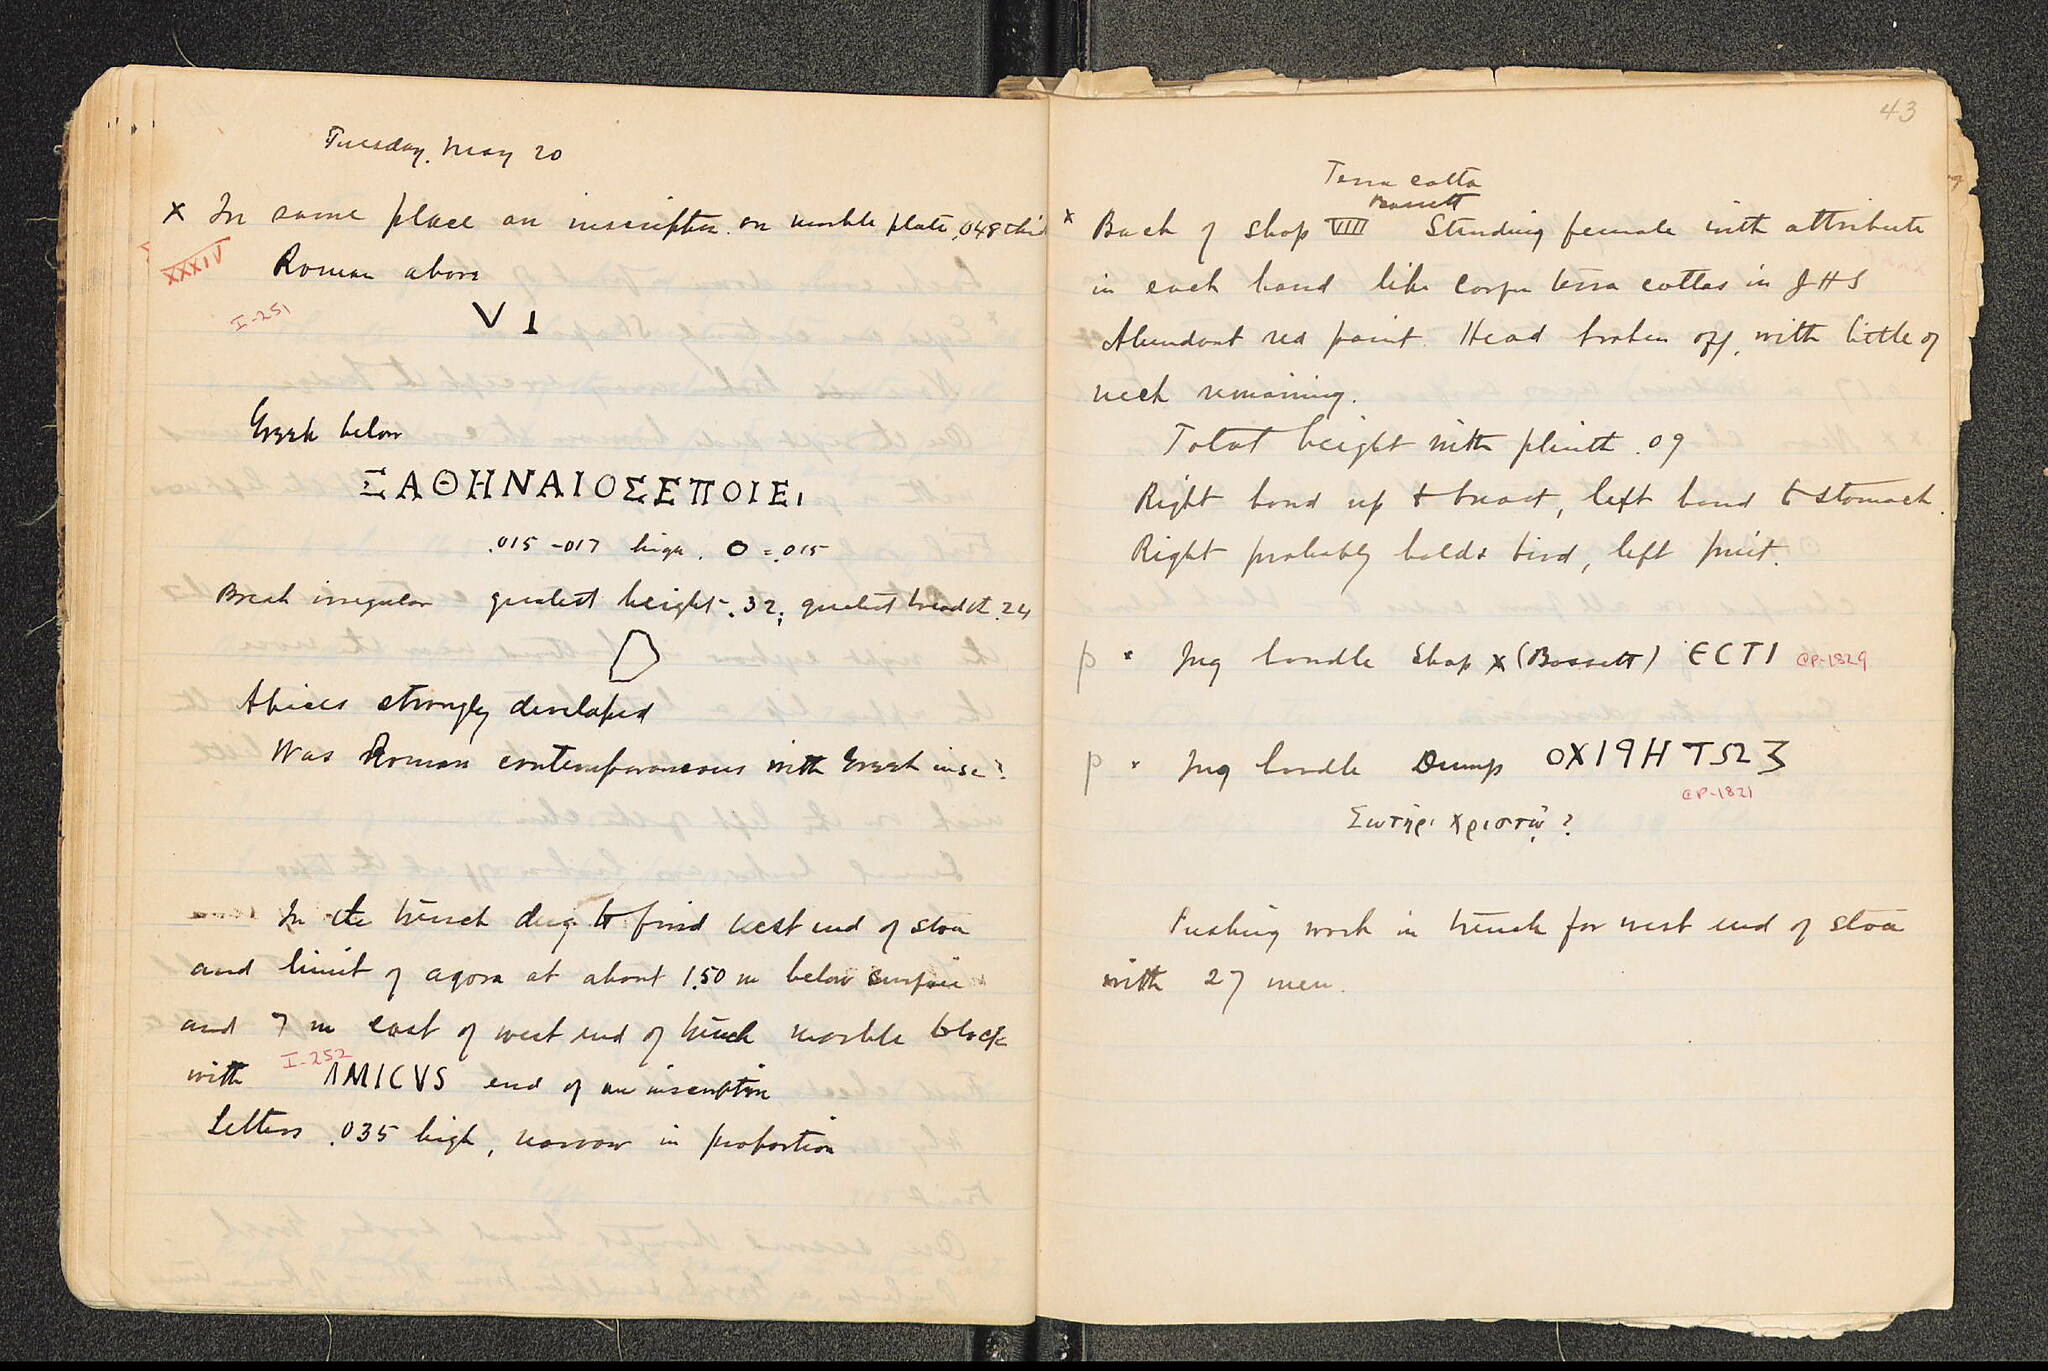 Tuesday, May 20
x In same place an inscription on marble plate, .048 thick
XXXIV
Roman above
I-251
V I
Greek below
ΞΑΘΗΝΑΙΟΣΕΠΟΙΕΙ
.015 - 017 high. O = .015
Break irregular greatest height .32; greatest breadth .24
Apices strongly developed
Was Roman contemporaneous with Greek insc?
In the trench dug to find west end of stoa
and limit of agora at about 1.50 m below surface
and 7 m east of west end of trench marble block
I-252
with AMICVS end of an inscription
Letters .035 high, narrow in proportion
43
Terra cotta
Bassett
x Back of shop VIII Standing female with attribute
in each hand like Corfu terra cottas in JHS
Abundant red paint. Head broken off, with little of
neck remaining.
Total height with plinth .09
Right hand up to breast, left hand to stomach.
Right probably holds bird, left fruit.
p x Jug handle Shop X (Bassett) ECTI CP-1829
p x Jug handle Dump OX19HTΩ3
CP-1821
Σωτῆρι Χριστῷ ?
Pushing work in trench for west end of stoa
with 27 men.